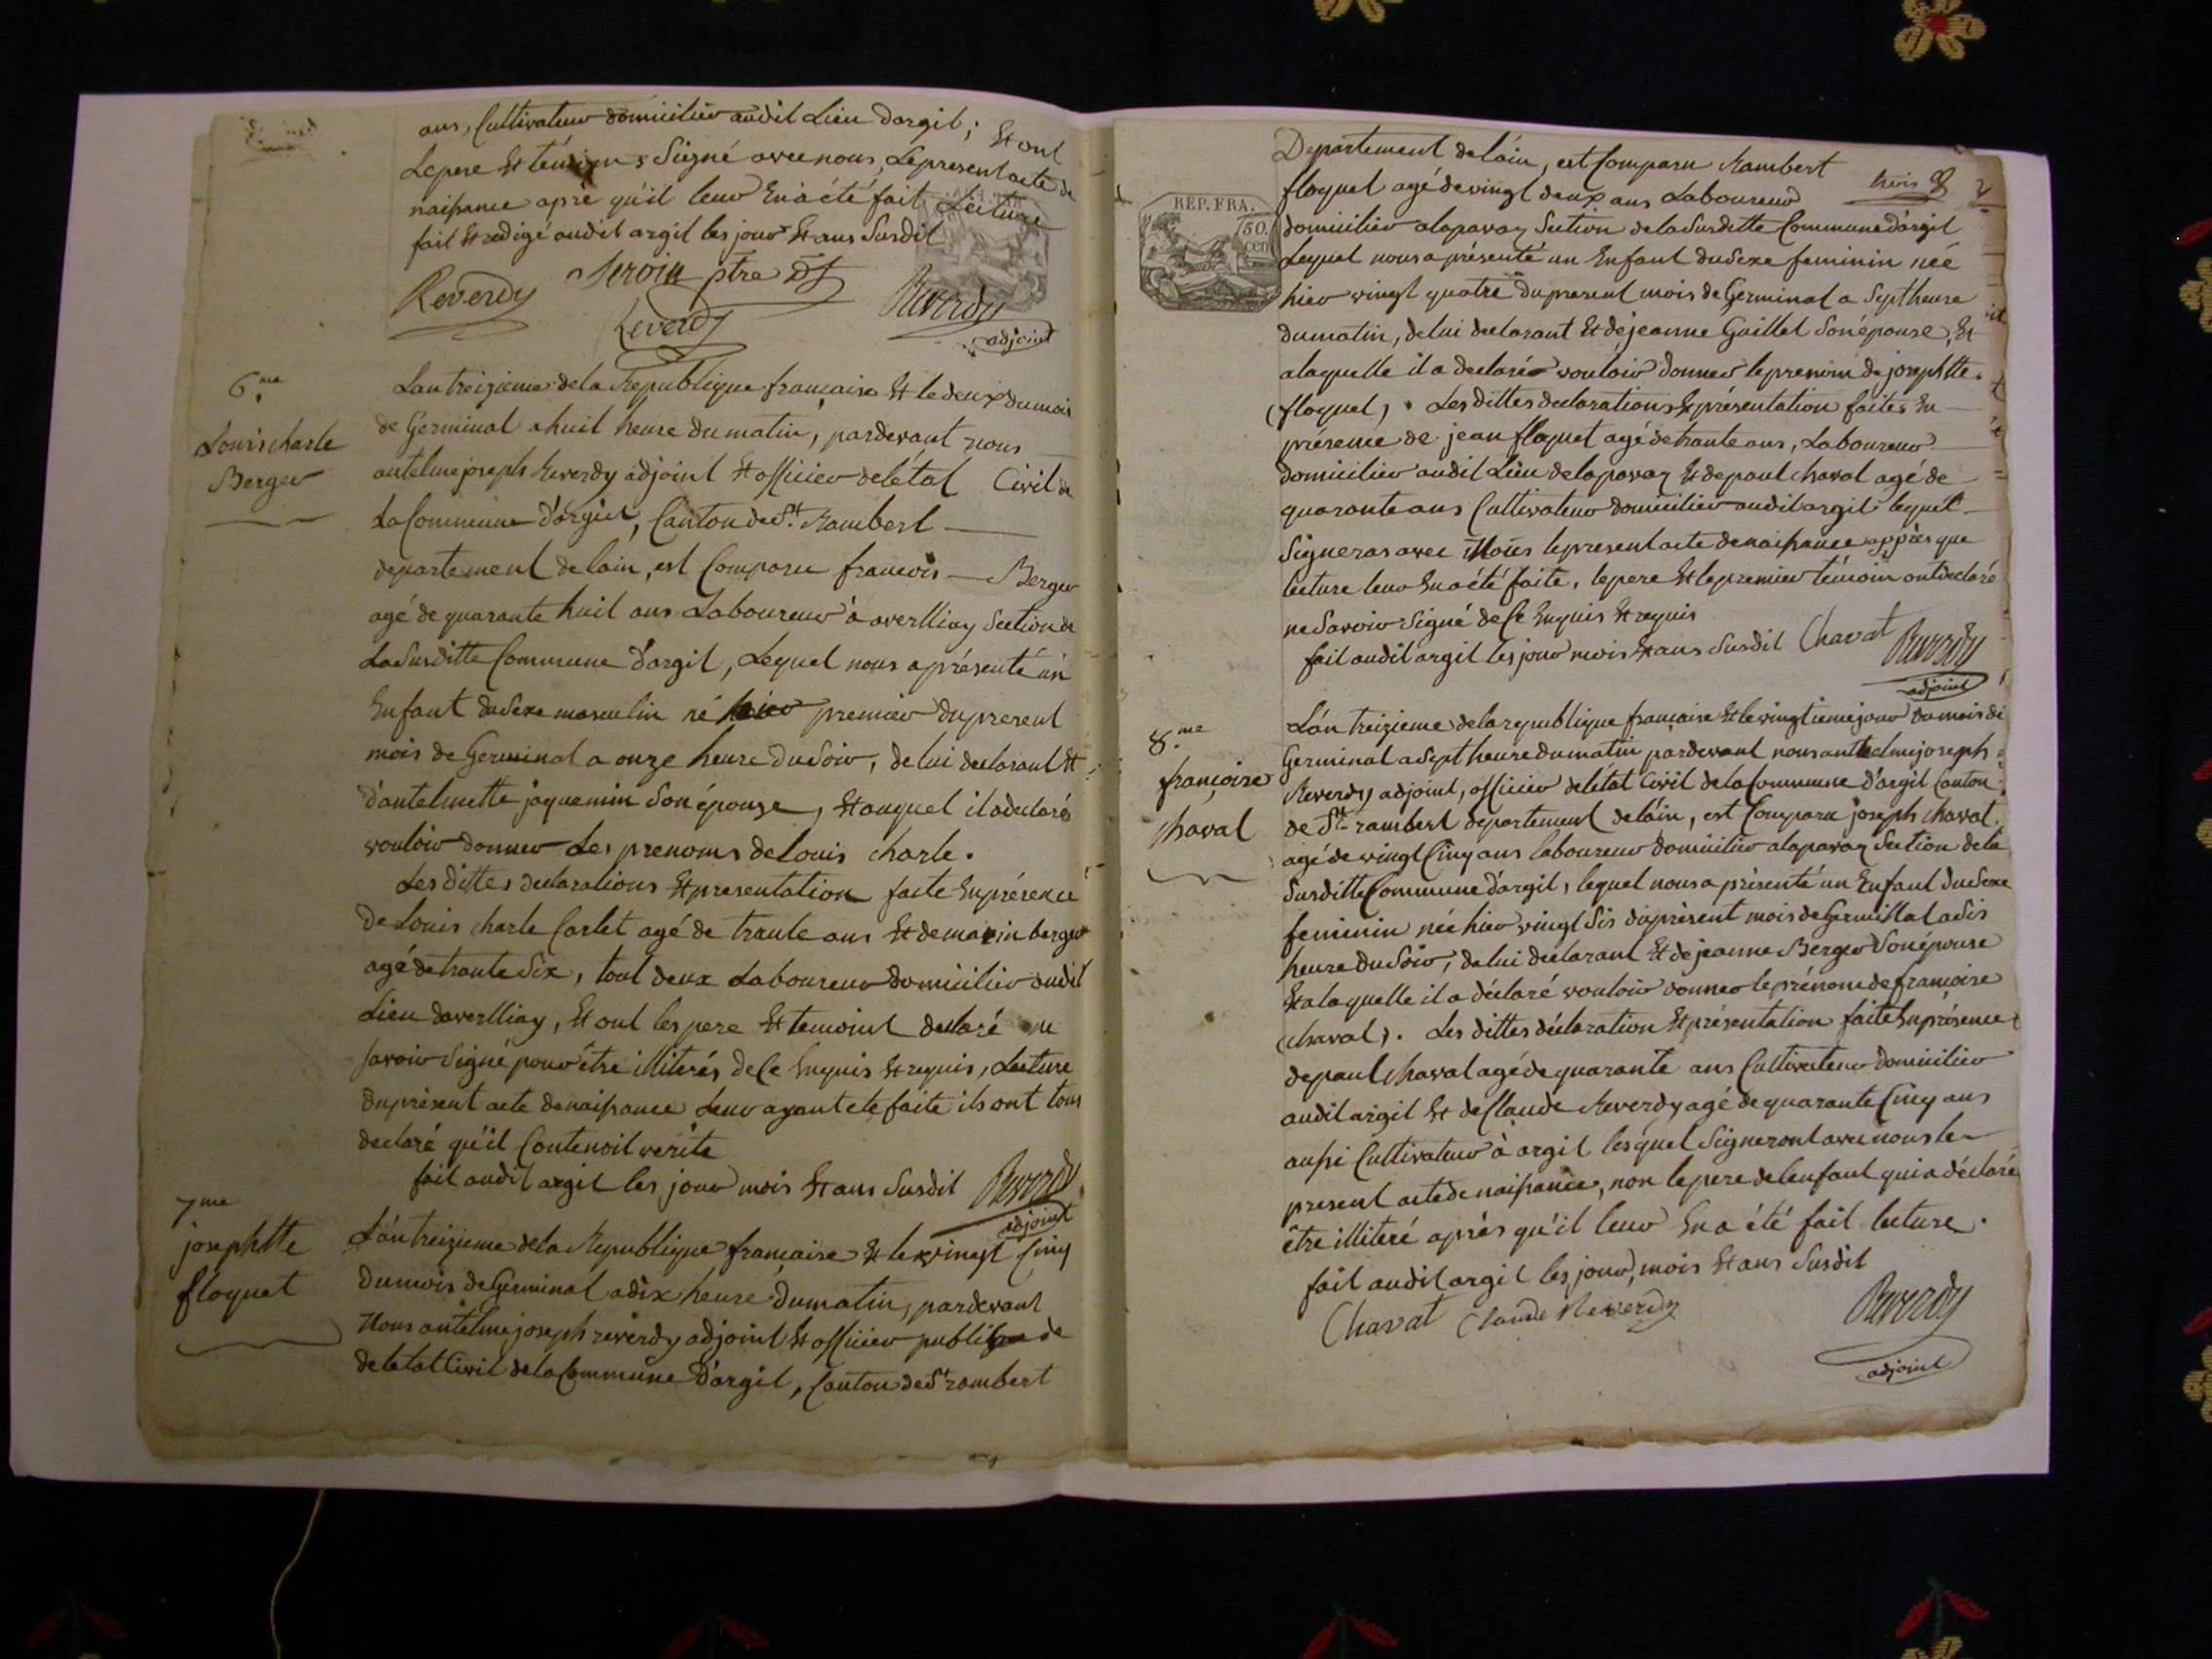 ans, Cultivateur domicilier audit Lieu dargil; Et ont
Lepere Et témoins Signé avec nous, Lepresent acte de
naissance apré qu'il leur En a été fait Lecture
fait Et redigé audit argil les jour Et ans Susdit
Reverdy ptre
Reverdy Reverdy
adjoint
6.me
Louis charle
Berger
Lan treizieme de la Republique française Et le deux du mois
de Germinal a huit heure du matin, pardevant nous
antelme joseph Reverdy adjoint Et officier de létat Civil de
La Commune d'argil, Canton de St. Rambert
departement de lain, est Comparu francois Berger
agé de quarante huit ans Laboureur à averlliay Section de
La Susditte Commune d'argil, Lequel nous a présenté un
Enfant du Sexe masculin né hier premier du present
mois de Germinal a onze heure du Soir, de lui declarant Et
d'antelmette jaquemin Son épouse, Et auquel il a declaré
vouloir donner Les prenoms de Louis charle.
Les dittes declarations Et presentation faite En présence
de Louis charle Carlet agé de trante ans Et de marin berger
agé de trante Six, tout deux Laboureur domicilier audit
Lieu daverlliay, Et ont les pere Et temoins declaré ne
Savoir Signé pour être illiterés de Ce Enquis Et requis, Lecture
du présent acte de naissance Leur ayant ete faite ils ont tous
declaré qu'il Contenoit verite
fait audit argil les jour mois Et ans Susdit Reverdy
adjoint
7me
josephtte
floquet
L'an treizieme de la Republique française Et le vingt Cinq
du mois de Germinal a dix heure du matin, pardevant
Nous antelme joseph reverdy adjoint Et officier public de
de letat Civil de la Commune D'argil, Canton de St rambert
Departement de láin, est Comparu Rambert
trois
floquet agé de vingt deux ans Laboureur
REP. FRA.
50.
cen
domicilier a laparay Section de la Susditte Commune d'argil
Lequel nous a présenté un Enfant du Sexe feminin née
hier vingt quatre du present mois de Germinal a Sept heure
du matin, de lui declarant Et de jeanne Guillet Son épouse, Et
a laquelle il a declaré vouloir donner le prenom de josephtte.
(floquet). Les dittes declarations Et présentation faites En
présence de jean floquet agé de trante ans, Laboureur
domicilier audit Lieu de laparay Et de paul chaval agé de
quarante ans Cultivateur domicilier audit argil lequel
Signeras avec Nous le present acte de naissance apprès que
lecture leur En a été faite, le pere Et le premier témoin ont declaré
ne Savoir Signé de Ce Enquis Et requis
fait audit argil les jour mois Et ans Susdit Chavat Reverdy
adjoint
8.me
françoise
chaval
L'an treizieme de la republique française Et le vingtieme jour du mois de
Germinal a Sept heure du matin pardevant nous antelme joseph
Reverdy adjoint, officier de létat Civil de la Commune d'argil Canton
de St. rambert departement de láin, est Comparu joseph chaval.
agé de vingt Cinq ans laboureur domicilier a laparay Section de la
Susditte Commune d'argil, lequel nous a présenté un Enfant du Sexe
feminin née hier vingt Sis du présent mois de Germinal a Sis
heure du Soir, de lui déclarant Et de jeanne Berger Son épouse
Et a laquelle il a déclaré vouloir donner le prénom de françoise
(chaval). Les dittes déclaration Et présentation faite En présence
de paul chaval agé de quarante ans Cultivateur domicilier
audit argil Et de Claude Reverdy agé de quarante Cinq ans
aussi Cultivateur à argil lesquel Signeront avec nous le
present acte de naissance, non le pere de lenfant qui a déclaré
être illiteré après qu'il leur En a été fait lecture.
fait audit argil les jour, mois Et ans Susdit
Chavat Claude Reverdy Reverdy
adjoint